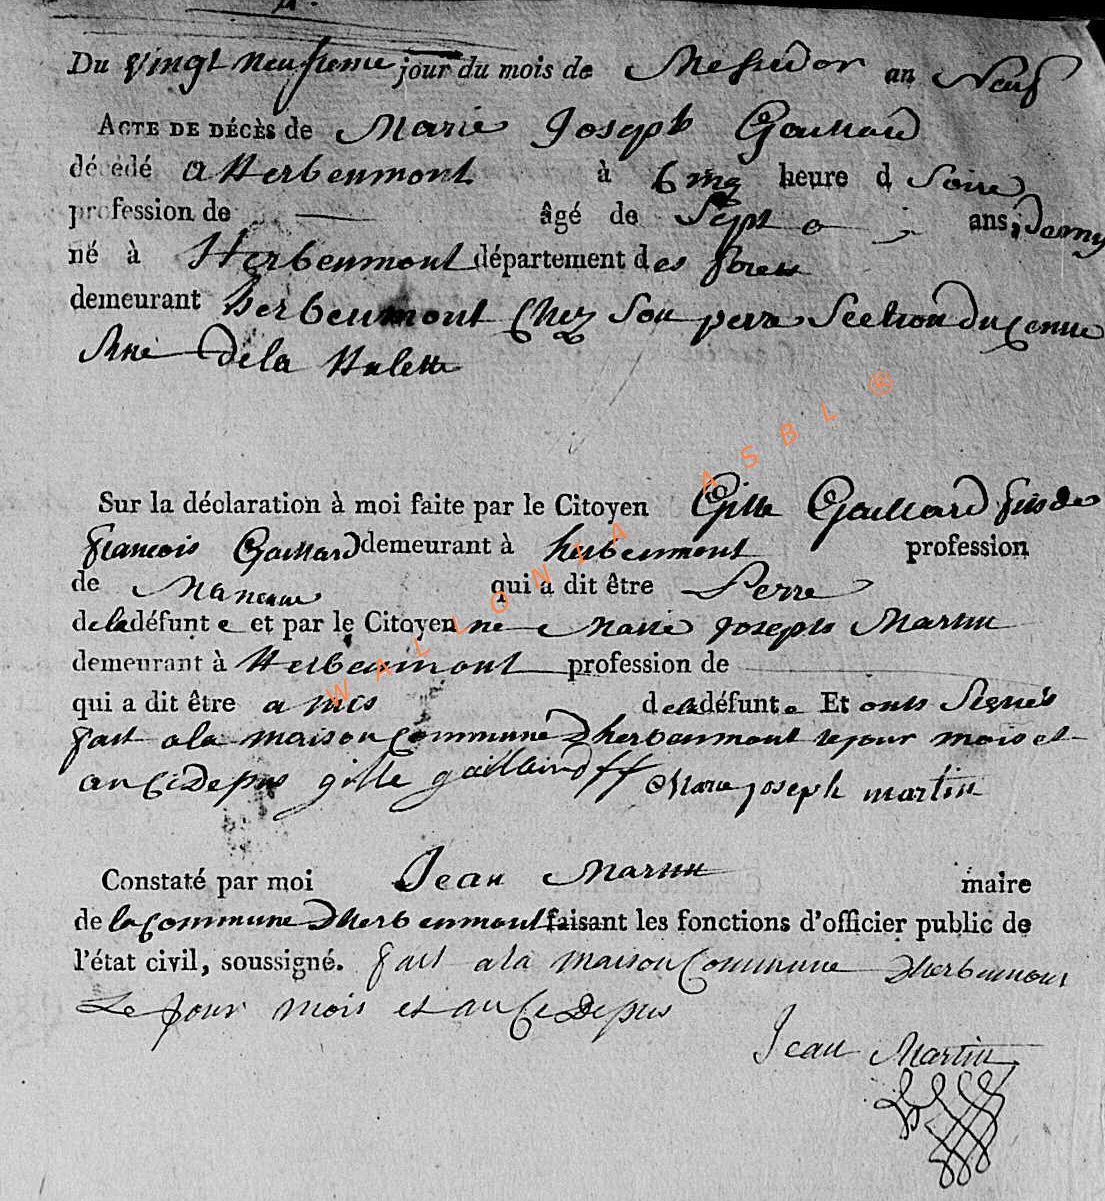 Du vingt neufieme jour du mois de Mesidor an Neuf
ACTE DE DÉCÈS de Marie Joseph Gaillard
décédé a Herbeumont à Cinq heure d Soire
profession de âgé de Sept ans, demy
né à Herbeumont département des forets
demeurant herbeumont Chez Son perre Section du
Rue de la Halette
Sur la déclaration à moi faite par le Citoyen Gille Gaillard fils de
francois Gaillard demeurant à herbeumont profession
de qui a dit être Perre
de la défunte et par le Citoyenne Marie Joseph Martin
demeurant à Herbeumont profession de
qui a dit être amies de la défunte Et onts Signés
fait a la maison Commune Dherbeumont le jour mois et
an Cidepus gille gaillard Marie joseph martin
Constaté par moi Jean Martin maire
de la Commune Dherbeumont faisant les fonctions d'officier public de
l'état civil, soussigné. fait a la maison Commune Dherbeumont
Le jour mois et an Ci Depus
Jean Martin
WALLONIA ASBL ®